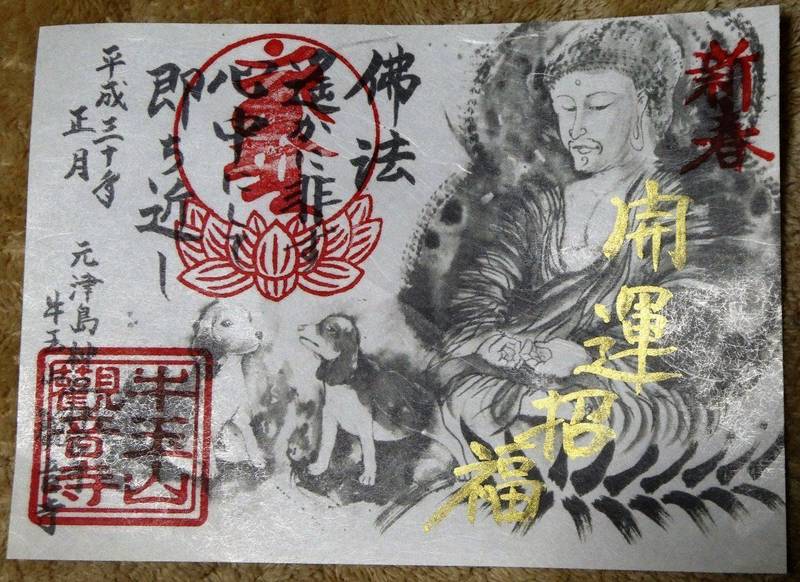 新春
開運招福
佛法
遙かに非ず
心中にして
即ち近し
平成三十年
正月
元津島
牛玉
音寺
牛玉山
觀音寺